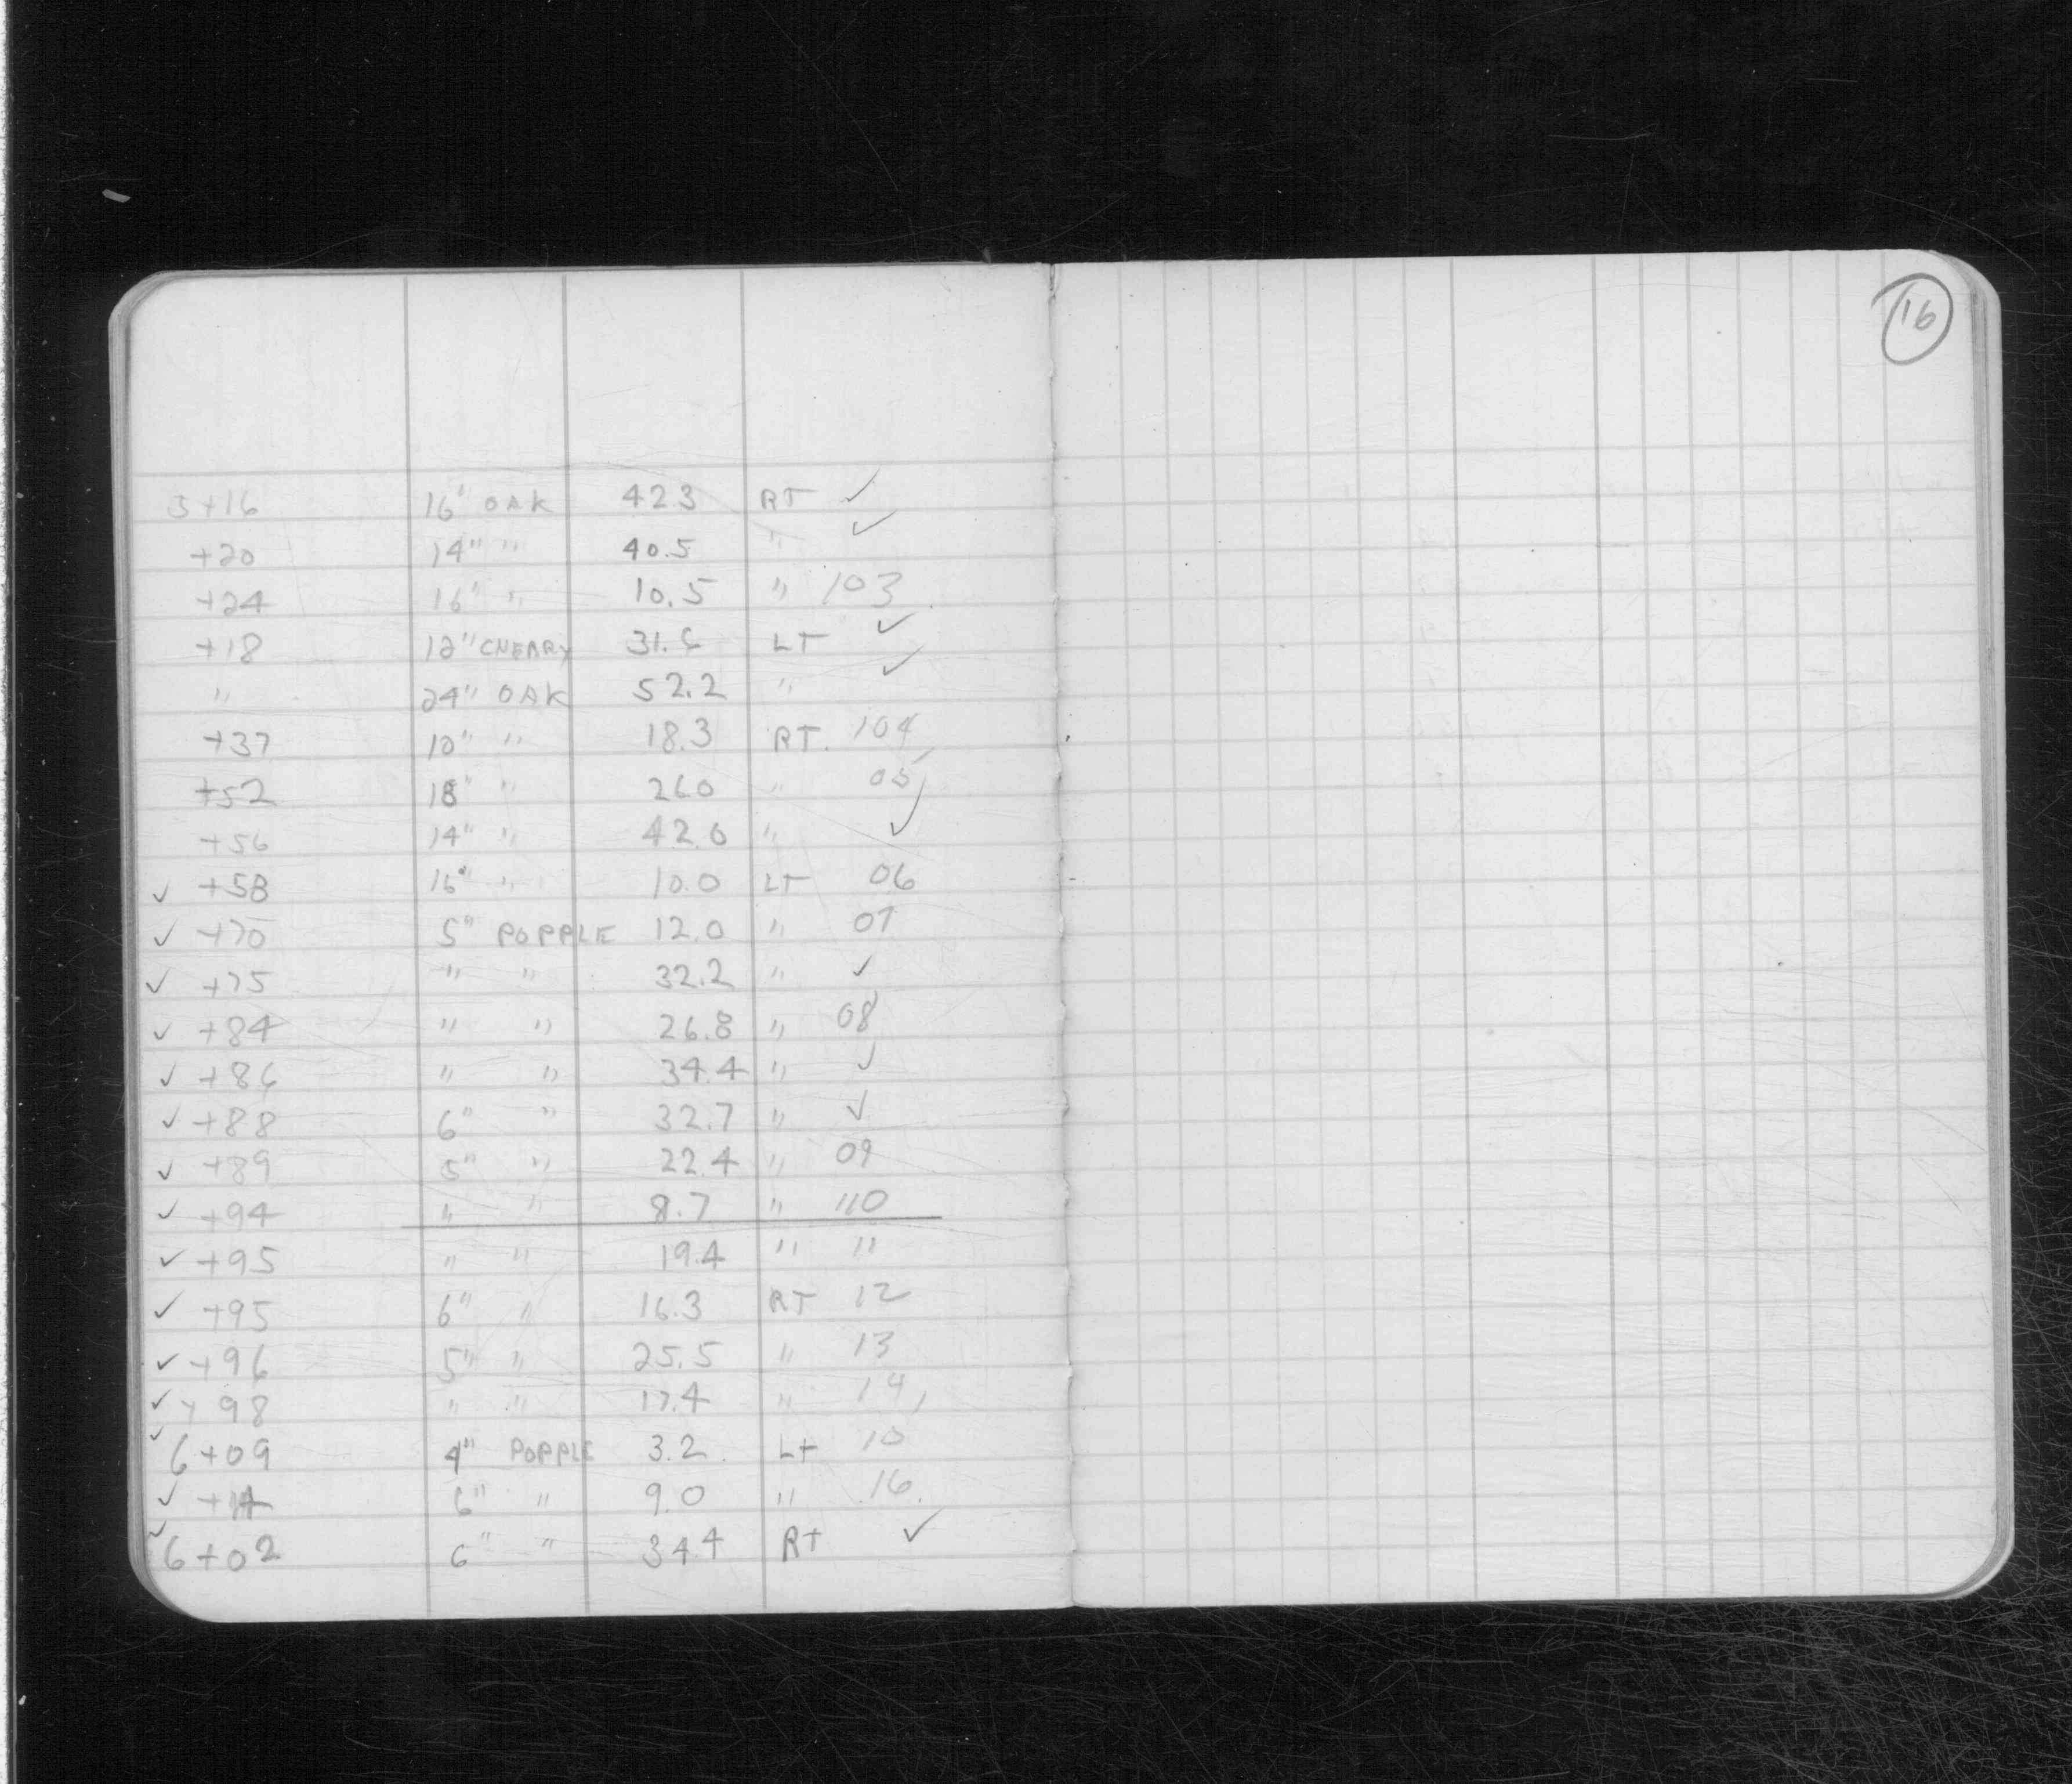 16
5+16 16" OAK 42.3 RT ✓
+20 14" " 40.5 " ✓
+24 16" " 10.5 " 103
+18 12" CHERRY 31.6 LT ✓
" 24" OAK 52.2 " ✓
+37 10" " 18.3 RT. 104
+52 18" " 26.0 " 05
+56 14" " 42.0 " ✓
✓ +58 16" " 10.0 LT 06
✓ +70 5" POPPLE 12.0 " 07
✓ +75 " " 32.2 " ✓
✓ +84 " " 26.8 " 08
✓ +86 " " 34.4 " ✓
✓ +88 6" " 32.7 " ✓
✓ +89 5" " 22.4 " 09
✓ +94 " " 8.7 " 110
✓ +95 " " 19.4 " 11
✓ +95 6" " 16.3 RT 12
✓ +96 5" " 25.5 " 13
✓ +98 " " 17.4 " 14
✓ 6+09 4" POPPLE 3.2 Lt 15
✓ +14 6" " 9.0 " 16
✓ 6+02 6" " 34.4 Rt ✓